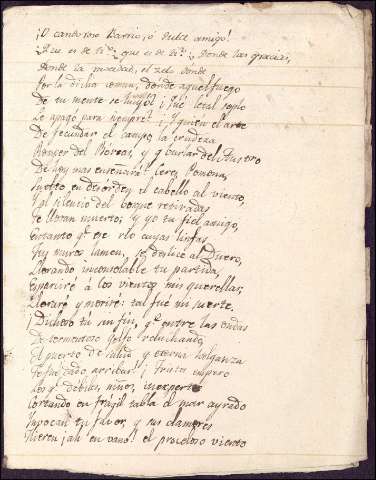 ¡O candoroso Barrio, ó dulce amigo!
¿Qué es de ti? ¿que es de ti? ¿Donde las gracias,
donde la mocedad, el zelo donde
por la dicha comun; donde aquel fuego
de tu mente se huyó? ¿Qué letal soplo
le apagó para siempre? ¡Y quien el arte
de fecundar el campo, la crudeza
Romper del Boreas, y burlar del Austro
De hoy mas enseñará? Ceres, Pomona,
suelto en desórden el cabello al viento,
al silencio del bosque retiradas
Te lloran muerto; y yo tu fiel amigo,
Entanto q.e ese rio cuyas linfas
Tus muros lamen, se deslice al Duero,
Llorando inconsolable tu partida,
Esparciré á los vientos mis querellas,
Lloraré y moriré: tal fué mi suerte.
¡Dichoso tú sin fin, q.e entre las ondas
De tormentoso golfo reluchando,
El puerto de salud y eterna holganza
Te fué dado arribar! ¡Triste empero
Los q.e debiles, niños, inexpertos
Cortando en fragil tabla el mar ayrado
Invocan tu favor, y sus clamores
Hieren ¡ah en vano! el proceloso viento